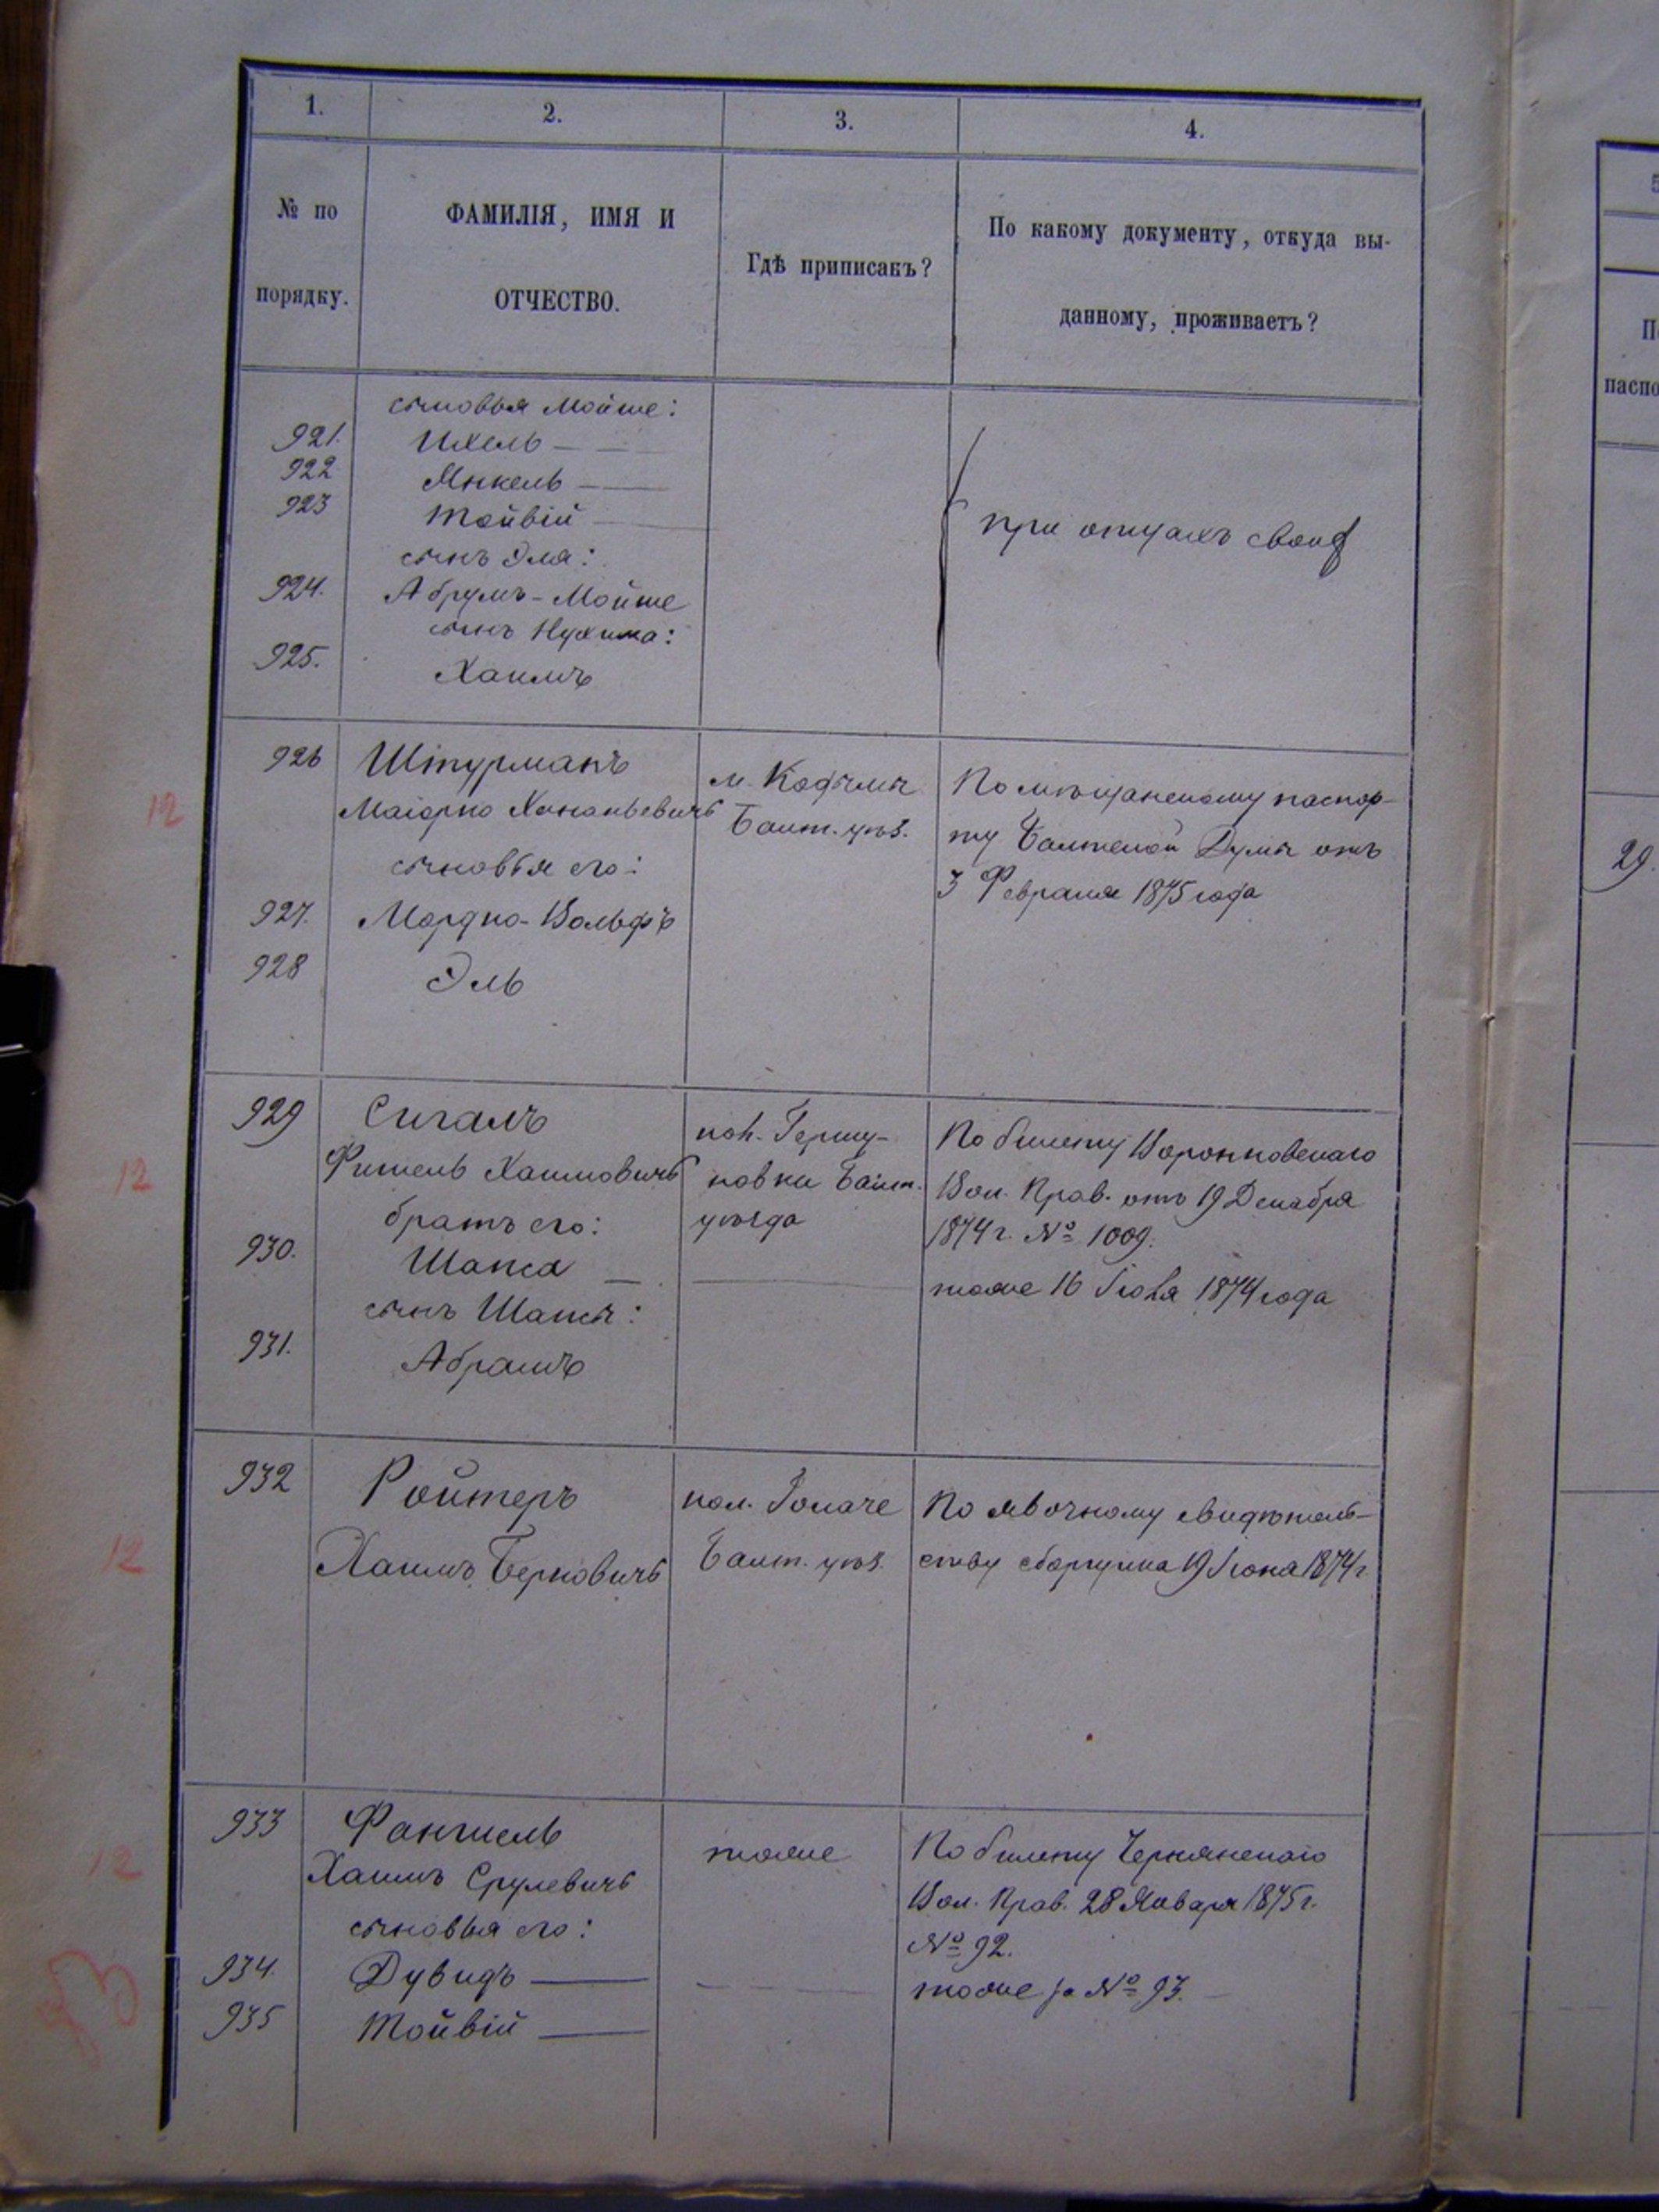 1. 2. 3. 4.
№ по порядку.
ФАМИЛІЯ, ИМЯ И
ОТЧЕСТВО.
Гдѣ приписанъ?
По какому документу, откуда вы-
данному, проживаетъ?
сыновья Мойше:
921. Ихель —
922 Янкель —
923 Тойвій —
сынъ Эля:
924. Абрумъ-Мойше
сынъ Нухима:
925. Хаимъ
при отцахъ своихъ
926 Штурманъ
Маіорко Хананьевичъ
сыновья его:
927. Мордко-Вольфъ
928 Эль
м. Кодымы
Балт. уѣз.
По мѣщанскому паспор-
ту Балтской Думы отъ
3 Февраля 1875 года
929 Сигалъ
Фишель Хаимовичъ
братъ его:
930. Шапса —
сынъ Шапсы:
931. Абрамъ
Гершу-
новки Балт.
уѣзда
По билету Воронковскаго
Вол. Прав. отъ 19 Декабря
1874 г. № 1009.
тоже 16 Іюля 1874 года
932 Ройтеръ
Хаимъ Берковичъ
кол. Гопаче
Балт. уѣз.
По явочному свидѣтель-
ству сборщика 19 Іюня 1874 г
933
Хаимъ Срулевичъ
сыновья его:
934. Дувидъ —
935 Тойвій —
тоже
По билету Чернянскаго
Вол. Прав. 28 Января 1875 г.
№ 92.
тоже за № 93.
12
12
12
12
29.
5
П
паспо